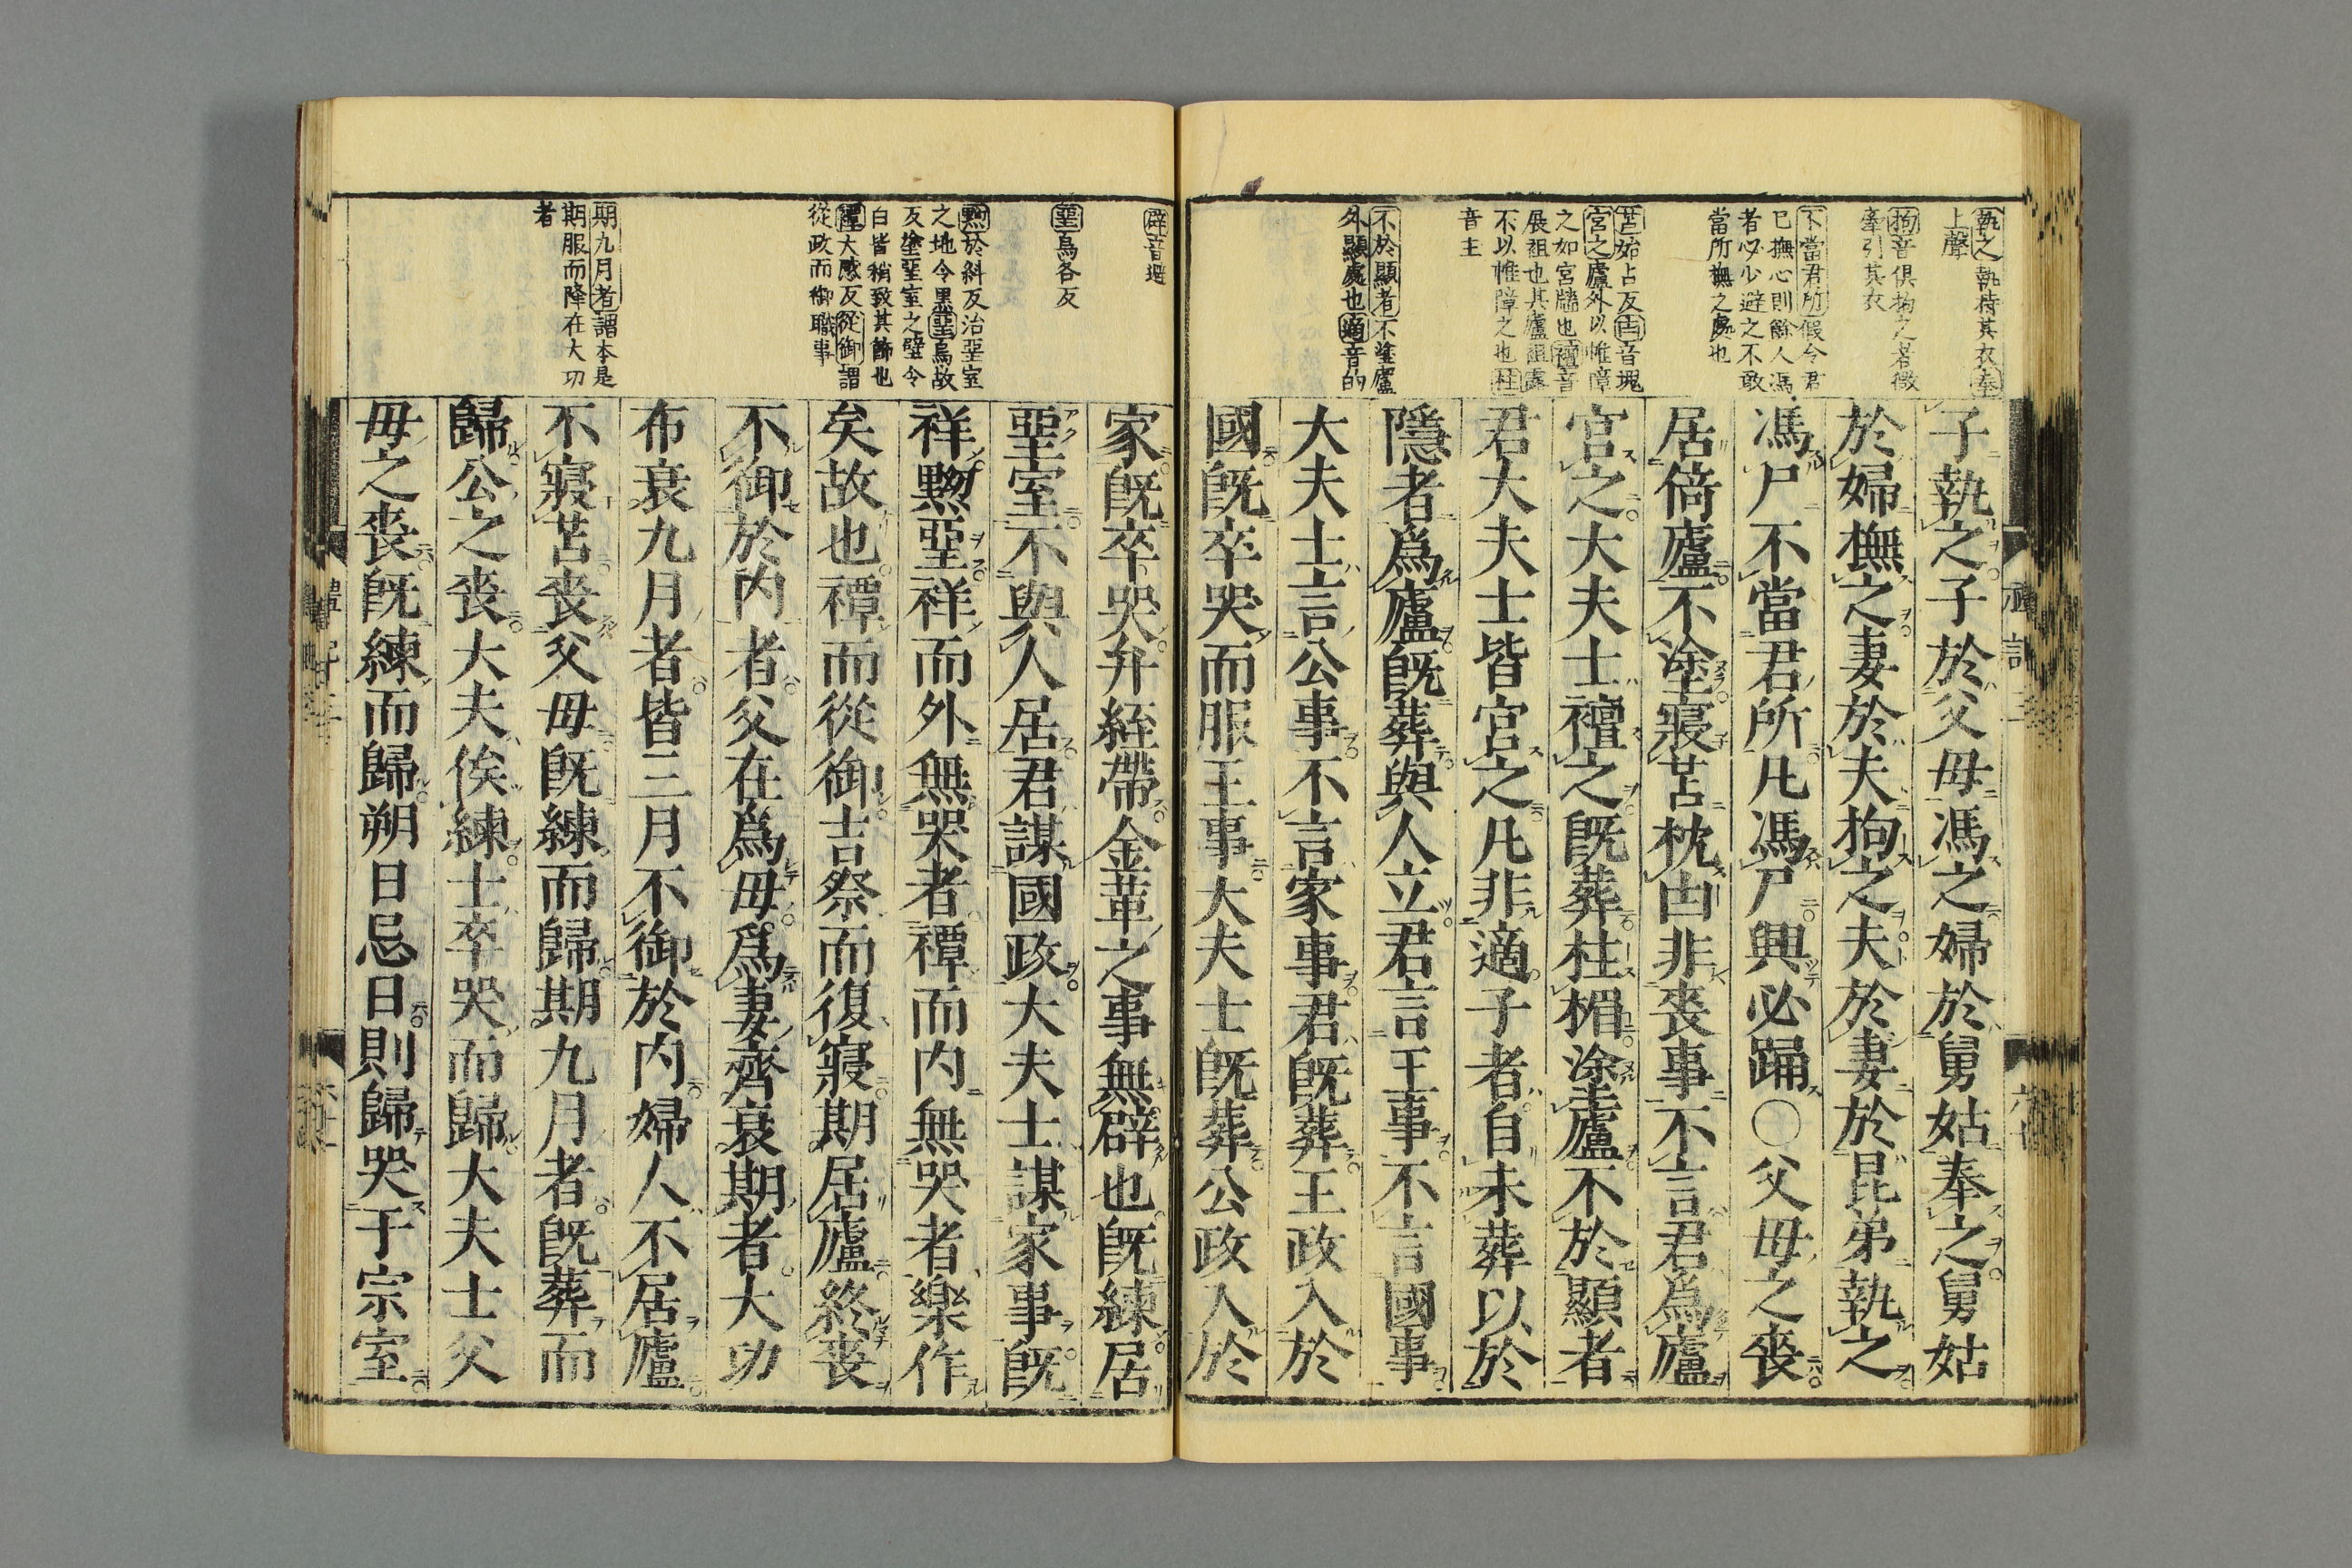 執之執持其衣奉
上聲
拘音俱拘之者微
牽引其衣
不當君所假令君
已撫心則餘人馮
者必少避之不敢
當所撫之處也
苫始占反凷音塊
宮之廬外以帷障
之如宮牆也襢音
展袒也其廬袒露
不以帷障之也柱
音主
不於顯者不塗廬
外顯處也適音的
子執之子於父母馮之婦於舅姑奉之舅姑
於婦撫之妻於夫拘之夫於妻於昆弟執之
馮尸不當君所凡馮尸興必踊〇父母之喪
居倚廬不塗寢苫枕凷非喪事不言君爲廬
宮之大夫士襢之既葬柱楣塗廬不於顯者
君大夫士皆宮之凡非適子者自未葬以於
隱者爲廬既葬與人立君言王事不言國事
大夫士言公事不言家事君既葬王政入於
國既卒哭而服王事大夫士既葬公政入於
辟音避
堊烏各反
黝於糾反治堊室
之地令黒堊烏故
反塗堊室之壁令
白皆稍致其飾也
禫大感反從御謂
從政而御職事
期九月者謂本是
期服而降在大功
者
家既卒哭弁絰帶金革之事無辟也既練居
堊室不與人居君謀國政大夫士謀家事既
祥黝堊祥而外無哭者禫而内無哭者樂作
矣故也禫而從御吉祭而復寢期居廬終喪
不御於内者父在爲母爲妻齊衰期者大功
布衰九月者皆三月不御於内婦人不居廬
不寢苫喪父母既練而歸期九月者既葬而
歸公之喪大夫俟練士卒哭而歸大夫士父
母之喪既練而歸朔日忌日則歸哭于宗室